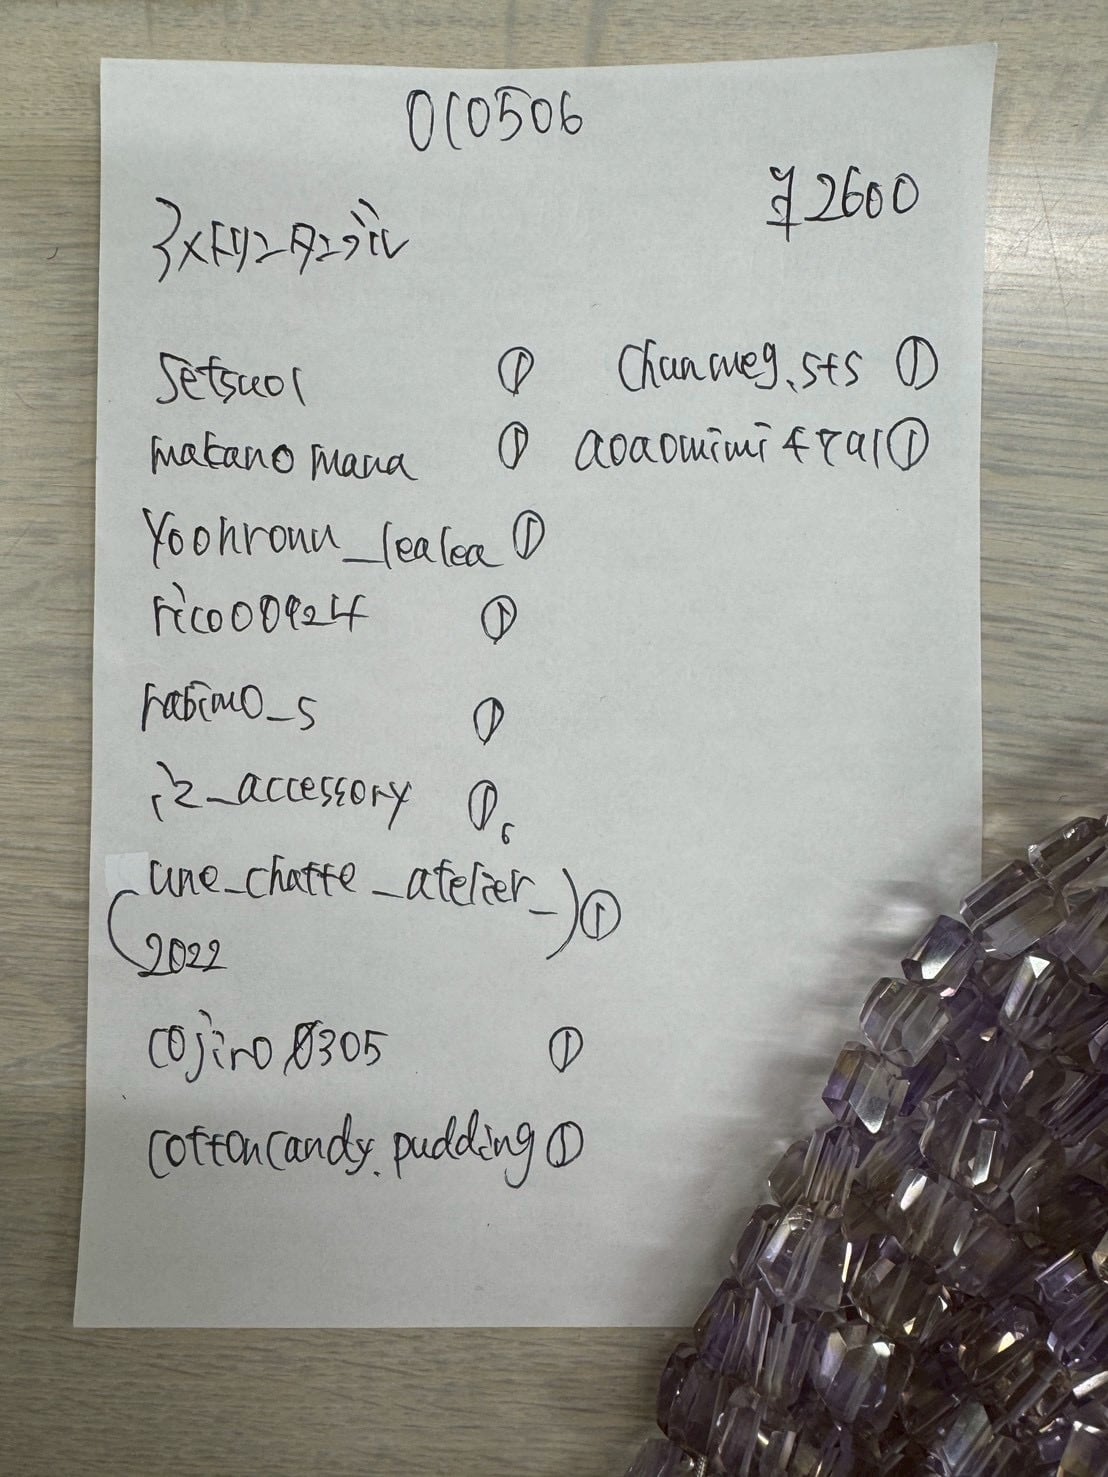 010506
¥2600
アメトリンタンブル
Setsuo1 ①
makanomana ①
yoohronu_lealea ①
rico00924 ①
rabimo_s ①
iz_accessory ①
(une_chatte_atelier_
2022) ①
cojiro0305 ①
cottoncandy.pudding ①
chanmeg.sts ①
aoaomimi ①